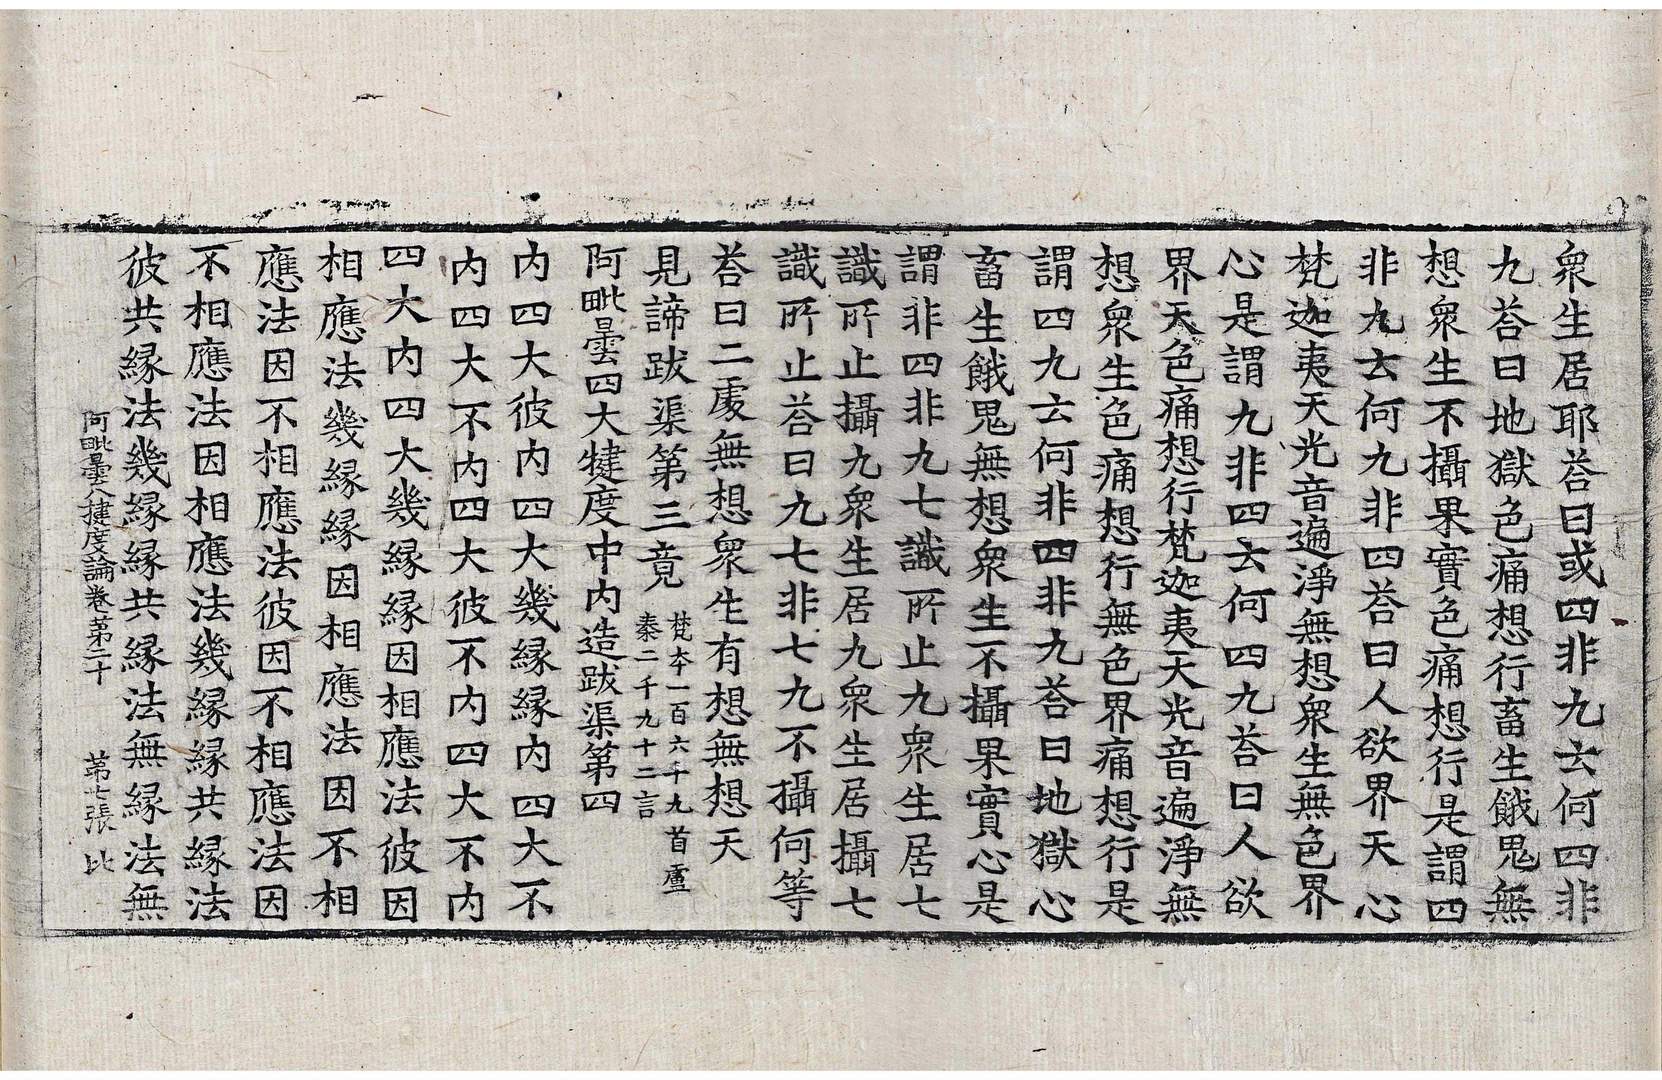 衆生居耶荅曰或四非九云何四非
九荅曰地獄色痛想行畜生餓鬼無
想衆生不攝果實色痛想行是謂四
非九云何九非四荅曰人欲界天心
梵迦夷天光音遍淨無想衆生無色界
心是謂九非四云何四九荅曰人欲
界天色痛想行梵迦夷天光音遍淨無
想衆生色痛想行無色界痛想行是
謂四九云何非四非九荅曰地獄心
畜生餓鬼無想衆生不攝果實心是
謂非四非九七識所止九衆生居七
識所止攝九衆生居九衆生居攝七
識所止荅曰九七非七九不攝何等
荅曰二處無想衆生有想無想天
見諦跋渠第三竟 梵夲一百六千九首盧
秦二千九十二言
阿毗曇四大犍度中内造跋渠第四
内四大彼内四大幾縁縁内四大不
内四大不内四大彼不内四大不内
四大内四大幾縁縁因相應法彼因
相應法幾縁縁因相應法因不相
應法因不相應法彼因不相應法因
不相應法因相應法幾縁縁共縁法
彼共縁法幾縁縁共縁法無縁法無
阿毗曇八揵度論卷第二十 第七張 比